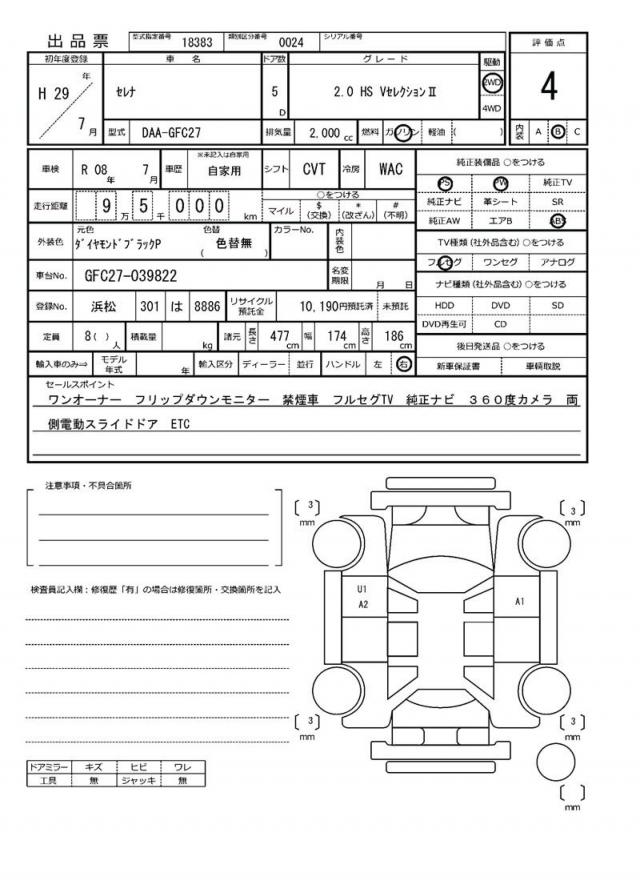 出品票 型式指定番号 18383 類別区分番号 0024 シリアル番号
評価点
4
内装 A B C
初年度登録 車名 ドア数 グレード 駆動
H 29 年 7 月
セレナ 5 D 2.0 HS VセレクションⅡ 2WD 4WD
型式 DAA-GFC27 排気量 2,000 cc 燃料 ガソリン 軽油 ( )
車検 R 08 年 7 月 車歴 ※未記入は自家用 自家用 シフト CVT 冷房 WAC
走行距離 9 5 万 千 0 0 0 km
○をつける
マイル $(交換) *(改ざん) #(不明)
外装色 元色 ダイヤモンドブラックP 色替 ( 色替無 ) カラーNo. 内装色
車台No. GFC27-039822 名変期限 月 日
登録No. 浜松 301 は 8886 リサイクル預託金 10,190円預託済 未預託
定員 8( ) 人 積載量 kg 諸元 長さ 477 cm 幅 174 cm 高さ 186 cm
輸入車のみ⇒ モデル年式 年 輸入区分 ディーラー 並行 ハンドル 左 右
純正装備品 ○をつける
PS PW 純正TV
純正ナビ 革シート SR
純正AW エアB ABS
TV種類(社外品含む) ○をつける
フルセグ ワンセグ アナログ
ナビ種類(社外品含む) ○をつける
HDD DVD SD
DVD再生可 CD
後日発送品 ○をつける
新車保証書 車輌取説
セールスポイント
ワンオーナー フリップダウンモニター 禁煙車 フルセグTV 純正ナビ 360度カメラ 両
側電動スライドドア ETC
注意事項・不具合箇所
検査員記入欄:修復歴「有」の場合は修復箇所・交換箇所を記入
ドアミラー キズ ヒビ ワレ
工具 無 ジャッキ 無
〔 3 〕mm
〔 3 〕mm
U1
A2
A1
〔 3 〕mm
〔 3 〕mm
〔 〕mm